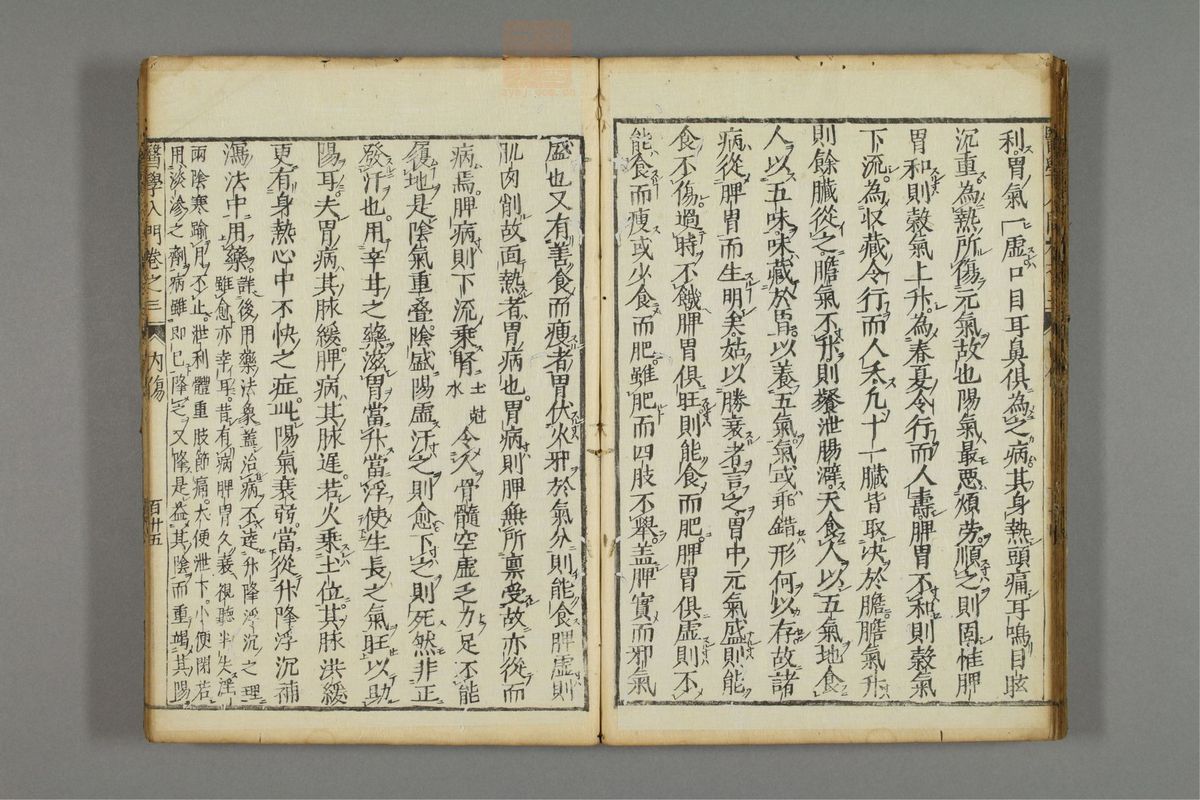 利胃氣一虛口目耳鼻俱為之病其身熱頭痛耳鳴目眩
沉重為熱所傷元氣故也陽氣最惡煩勞順之則固惟脾
胃和則穀氣上升為春夏令行而人壽脾胃不和則穀氣
下流為収藏令行而人夭凡十一臟皆取决於膽膽氣升
則餘臟從之膽氣不升則飱泄腸澼天食人以五氣地食
人以五味味藏於胃以養五氣氣或乖錯形何以存故諸
病從脾胃而生明矣姑以勝衰者言之胃中元氣盛則能
食不傷過時不饑脾胃俱旺則能食而肥脾胃俱虛則不
能食而瘦或少食而肥雖肥而四肢不舉盖脾實而邪氣
盛也又有善食而瘦者胃伏火邪於氣分則能食脾虛則
肌肉削故面熱者胃病也胃病則脾無所禀受故亦從而
病焉脾病則下流乘腎土尅水令人骨髓空虛乏力足不能
履地是陰氣重疊陰盛陽虛汗之則愈下之則死然非正
發汗也用辛甘之藥滋胃當升當浮使生長之氣旺以助
陽耳夫胃病其脉緩脾病其脉遲若火乘土位其脉洪緩
更有身熱心中不快之症此陽氣衰弱當從升降浮沉補
瀉法中用藥詳後用藥法象蓋治病不達升降浮沉之理
雖愈亦幸耳昔有病脾胃久衰視聽半失
兩陰寒踰月不止泄利體重肢節痛大便泄下小便閉若
用淡滲之劑病雖即已降之又降是益其陰而重竭其陽
醫學入門卷之三
內傷
百廿五